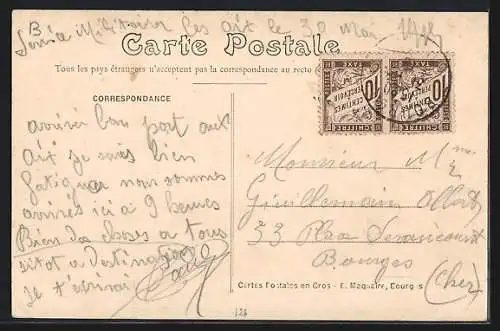 Service Militaire les aix le 30 mai
Carte Postale
Tous les pays étrangers n'acceptent pas la correspondance au recto
CORRESPONDANCE
arrivé bon port aux
aix je suis bien
fatiguer nous sommes
arrivés ici à 9 heures
Bien des choses a tous
sitot a Destination
je t'écrirai
CHIFFRE
10
CENTIMES
A
PERCEVOIR
TAXE
CHIFFRE
10
CENTIMES
A
PERCEVOIR
TAXE
Monsieur
Guillemain
33 Place
Bourges
(Cher)
Cartes Postales en Gros - E. Maquaire, Bourges